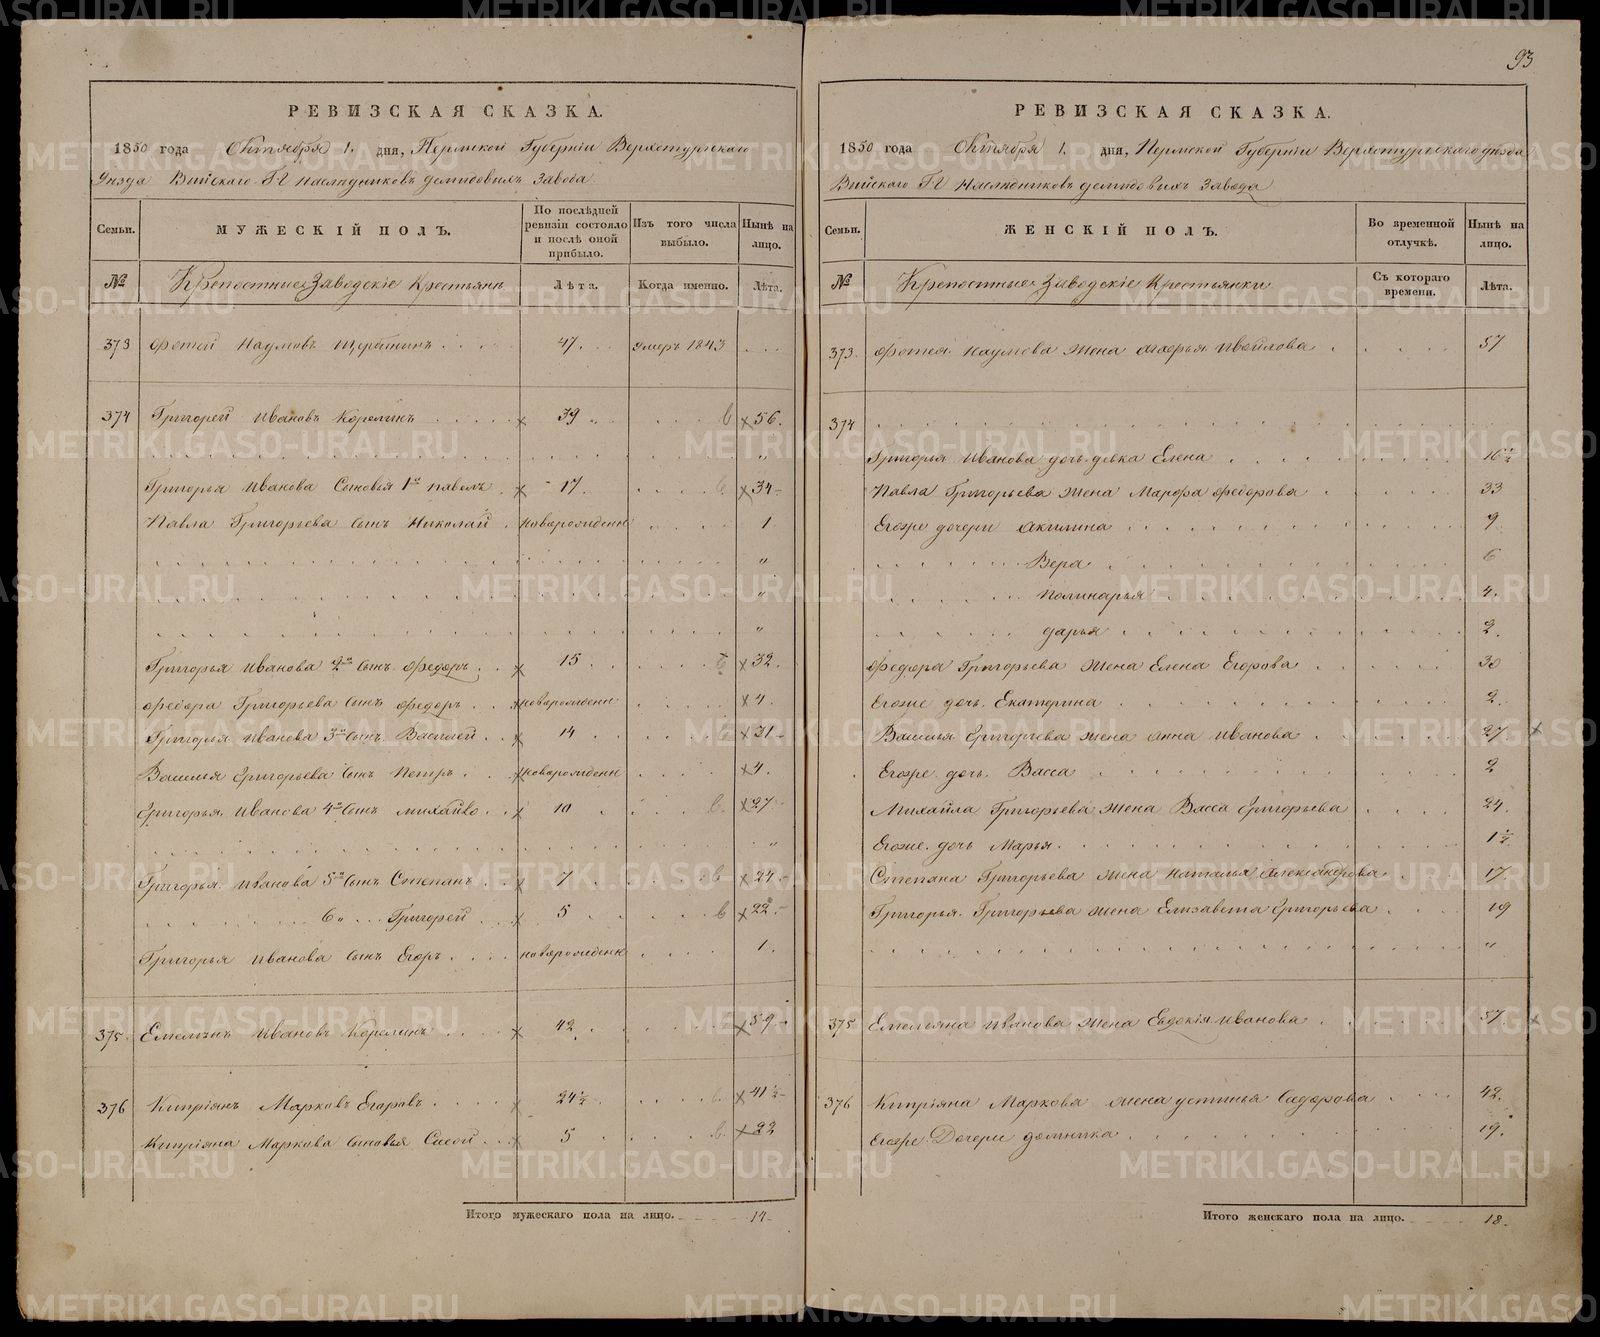 93
РЕВИЗСКАЯ СКАЗКА.
1850 года Октября 1. дня, Пермской Губерніи Верхотурскаго
Уѣзда Выйскаго Г.г Наслѣдниковъ Демидовыхъ Завода
Семьи. МУЖЕСКІЙ ПОЛЪ. По послѣдней ревизіи состояло и послѣ оной прибыло. Изъ того числа выбыло. Нынѣ на лицо.
№ Крепостные Заводскіе Крестьянъ Лѣта. Когда именно. Лѣта.
373 Фотей Наумовъ 47. умеръ 1843
374 Григорей Ивановъ Корелинъ 39 56.
Григорья Иванова Сыновья 1й Павелъ 17. 34
Павла Григорьева сынъ Николай новорожденн 1
Григорья Иванова 2й сынъ Федоръ 15 32.
Федора Григорьева сынъ Федоръ новорожденн 4.
Григорья Иванова 3й сынъ Василей 14 31
Василья Григорьева сынъ Петръ новорожденн 4.
Григорья Иванова 4й сынъ Михайло 10 27
Григорья Иванова 5й сынъ Степанъ 7 24
6й Григорей 5 22
Григорья Иванова сынъ Егоръ новорожденн 1.
375. Емельянъ Ивановъ Корелинъ 42. 59
376 Кипріянъ Марковъ Егоровъ 24 ½ 41 ½
Кипріяна Маркова сыновья Сысой 5 22
Итого мужескаго пола на лицо. 14
РЕВИЗСКАЯ СКАЗКА.
1850 года Октября 1. дня, Пермской Губерніи Верхотурскаго уѣзда
Выйскаго Г.г Наслѣдниковъ Демидовыхъ Завода
Семьи. ЖЕНСКІЙ ПОЛЪ. Во временной отлучкѣ. Нынѣ на лицо.
№ Крепостные Заводскіе Крестьянки Съ котораго времени. Лѣта.
373. Фотея Наумова жена 57
374
Григорья Иванова дочь девка Елена 16 ½
Павла Григорьева жена Марфа Федорова 33
Егоже дочери Акилина 9
Вера 6
Полинарья 4.
Дарья 2.
Федора Григорьева жена Елена Егорова 30
Егоже дочь Екатерина 2.
Василья Григорьева жена Анна Иванова 27
Егоже дочь Васса 2
Михайла Григорьева жена Васса Григорьева 24.
Егоже дочь Марья 1 ½
Степана Григорьева жена Наталья Александрова 17.
Григорья Григорьева жена Елизавета Григорьева 19
375 Емельяна Иванова жена Евдокія Иванова 57.
376 Кипріяна Маркова жена Устинья Сидорова 42.
Егоже Дочери Домника 19.
Итого женскаго пола на лицо. 18.
METRIKI.GASO-URAL.RU